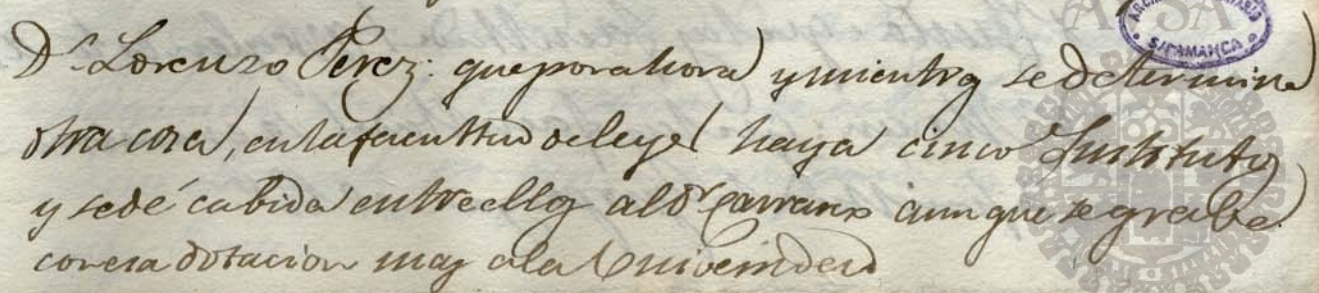 Dr. Lorenzo Perez: que por ahora y mientras se determina
otra cosa, en la facultad de leyes haya cinco Institutos
y se dé cabida entre ellos al Dr. Carranza aunque se grabe
con esa dotacion mas a la Universidad
SALAMANCA